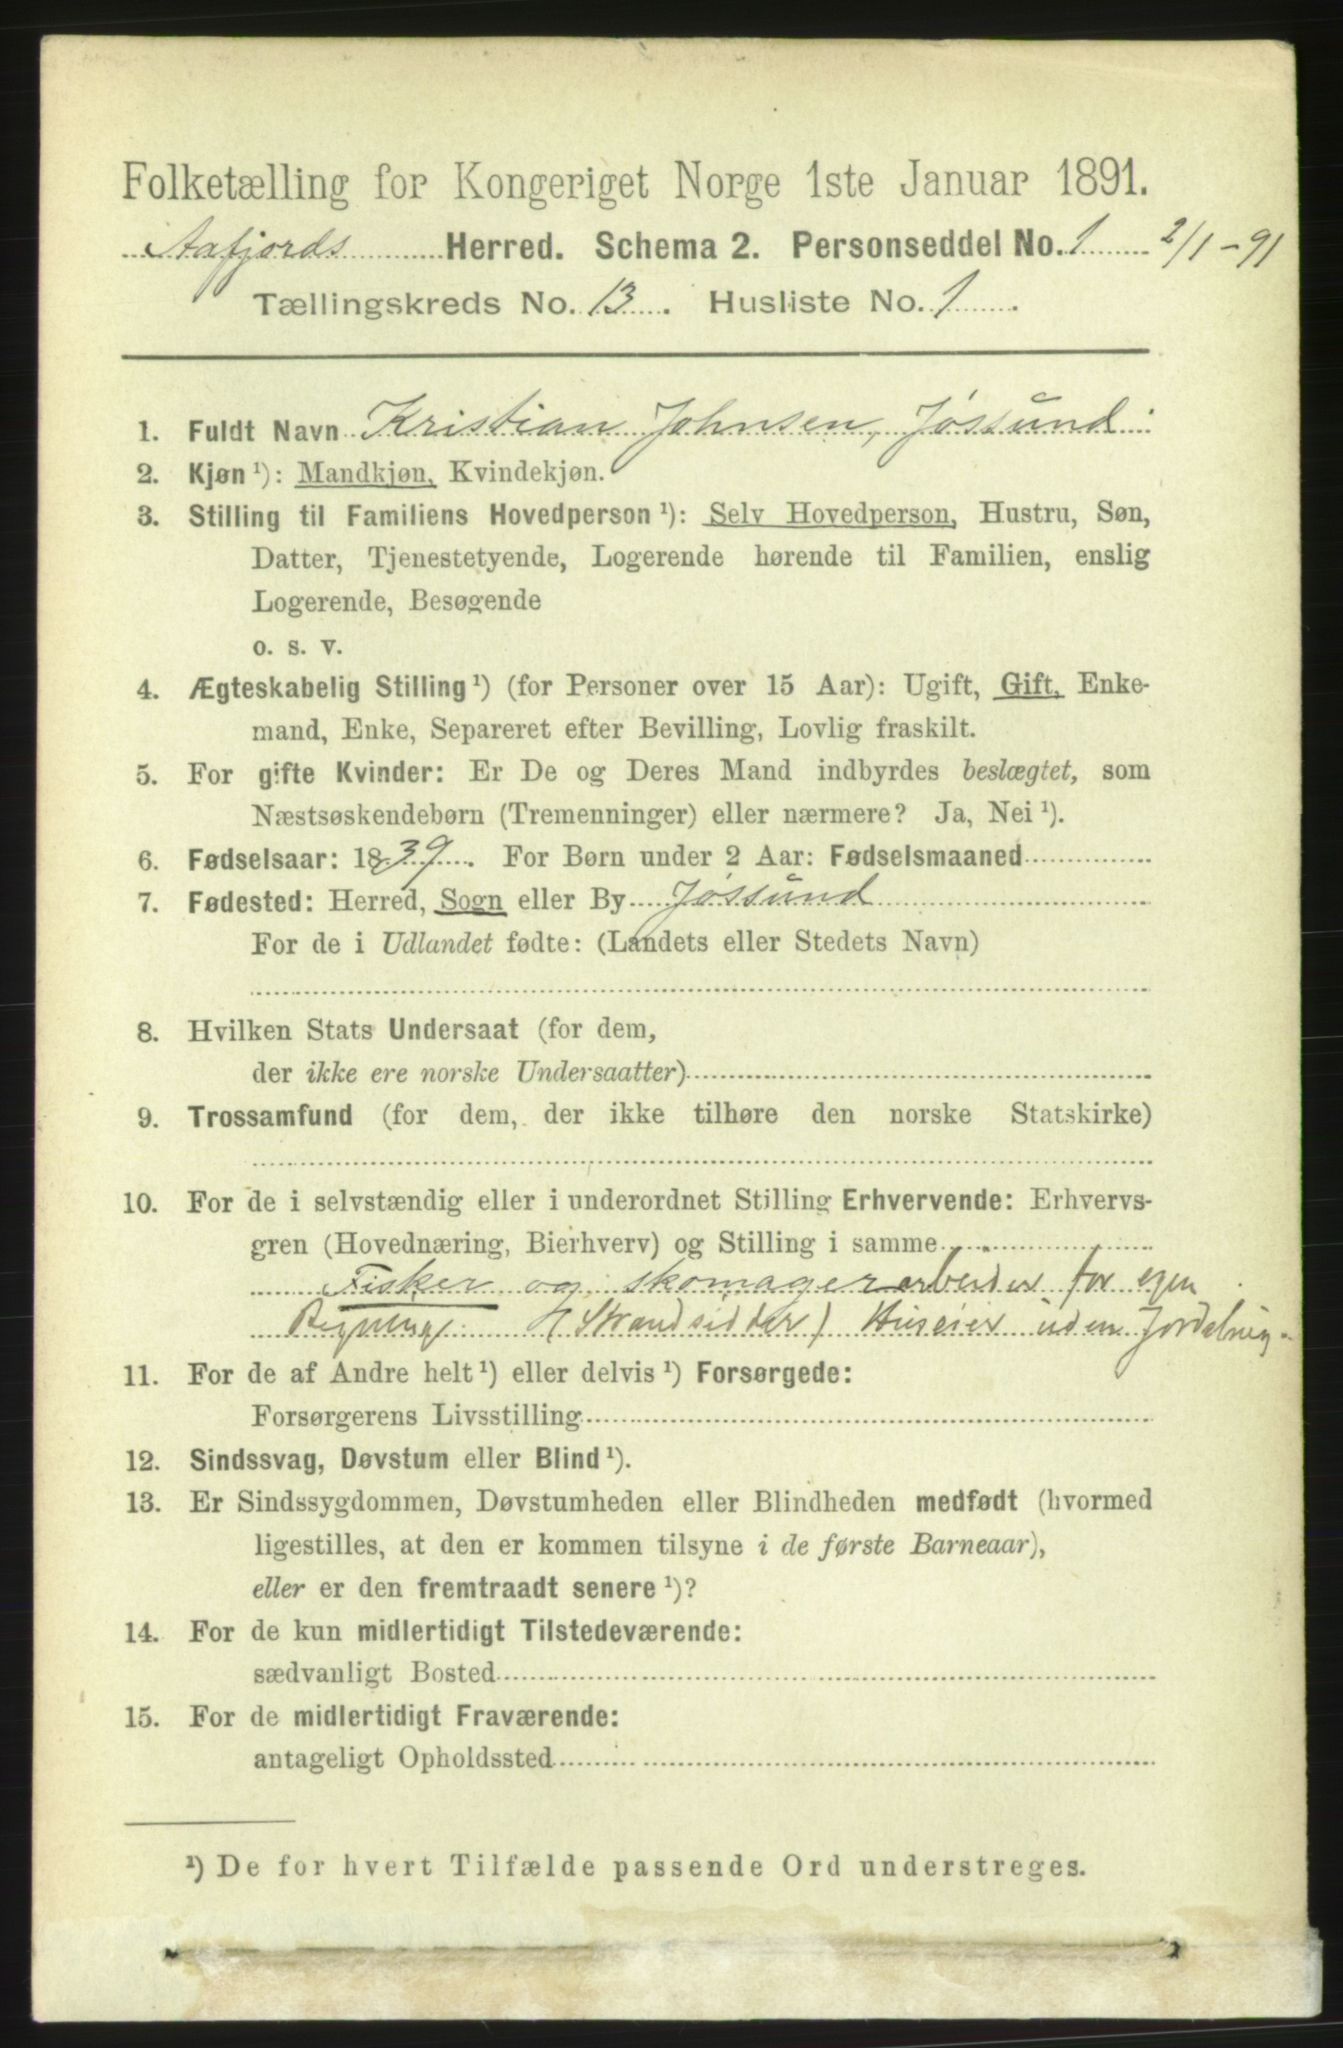 Folketælling for Kongeriget Norge 1ste Januar 1891.
Aafjords Herred. Schema 2. Personseddel No. 1 2/1-91
Tællingskreds No. 13. Husliste No. 1.
1. Fuldt Navn Kristian Johnsen, Jøssund
2. Kjøn ¹): Mandkjøn, Kvindekjøn.
3. Stilling til Familiens Hovedperson ¹): Selv Hovedperson, Hustru, Søn,
Datter, Tjenestetyende, Logerende hørende til Familien, enslig
Logerende, Besøgende
o. s. v.
4. Ægteskabelig Stilling ¹) (for Personer over 15 Aar): Ugift, Gift, Enke-
mand, Enke, Separeret efter Bevilling, Lovlig fraskilt.
5. For gifte Kvinder: Er De og Deres Mand indbyrdes beslægtet, som
Næstsøskendebørn (Tremenninger) eller nærmere? Ja, Nei ¹).
6. Fødselsaar: 1839. For Børn under 2 Aar: Fødselsmaaned
7. Fødested: Herred, Sogn eller By Jøssund
For de i Udlandet fødte: (Landets eller Stedets Navn)
8. Hvilken Stats Undersaat (for dem,
der ikke ere norske Undersaatter)
9. Trossamfund (for dem, der ikke tilhøre den norske Statskirke)
10. For de i selvstændig eller i underordnet Stilling Erhvervende: Erhvervs-
gren (Hovednæring, Bierhverv) og Stilling i samme
Fisker og skomagerarbeider for egen
Regning (Strandsidder) Huseier uden Jordbrug
11. For de af Andre helt ¹) eller delvis ¹) Forsørgede:
Forsørgerens Livsstilling
12. Sindssvag, Døvstum eller Blind ¹).
13. Er Sindssygdommen, Døvstumheden eller Blindheden medfødt (hvormed
ligestilles, at den er kommen tilsyne i de første Barneaar),
eller er den fremtraadt senere ¹)?
14. For de kun midlertidigt Tilstedeværende:
sædvanligt Bosted
15. For de midlertidigt Fraværende:
antageligt Opholdssted
¹) De for hvert Tilfælde passende Ord understreges.